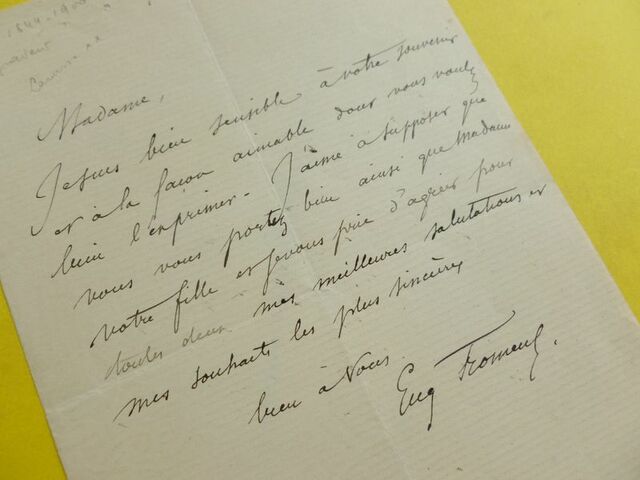 1844-1900
graveur
Madame,
Je suis bien sensible à votre souvenir
et à la façon aimable dont vous voulez
bien l'exprimer - J'aime à supposer que
vous vous portez bien ainsi que Madame
votre fille et je vous prie d'agréer pour
toutes deux mes meilleures salutations et
mes souhaits les plus sincères
bien à vous
Eug Froment.